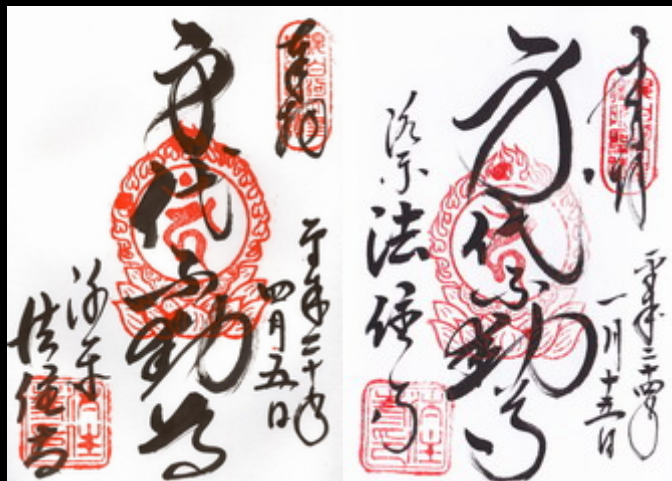 奉拝
身代不動尊
平成二十年
四月五日
洛東
法住寺
奉拝
身代不動尊
平成二十四年
一月十五日
洛東
法住寺